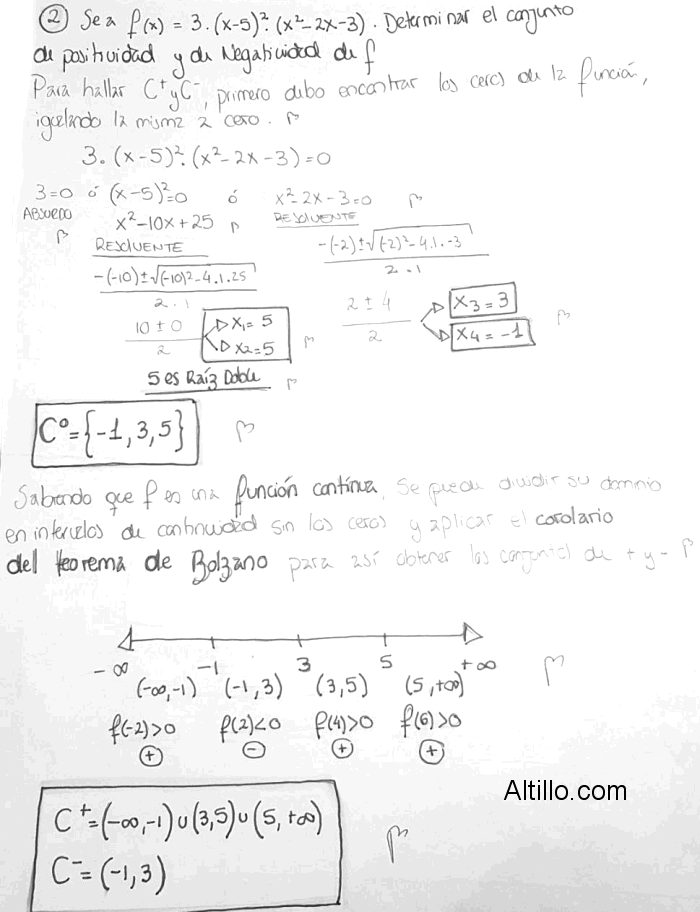 ② Sea f(x) = 3.(x-5)².(x²-2x-3). Determinar el conjunto
de positividad y de Negatividad de f
Para hallar C⁺ y C⁻, primero debo encontrar los ceros de la función,
igualando la misma a cero.
3.(x-5)².(x²-2x-3)=0
3=0 ó (x-5)²=0 ó x²-2x-3=0
ABSURDO x²-10x+25 RESOLVENTE
RESOLVENTE -(-2)±√(-2)²-4.1.-3
2.1
-(-10)±√(-10)²-4.1.25
2.1
2 ± 4
2
x₃=3
x₄=-1
10 ± 0
2
x₁=5
x₂=5
5 es Raíz Doble
C⁰={-1,3,5}
Sabiendo que f es una función continua, se puede dividir su dominio
en intervalos de continuidad sin los ceros y aplicar el corolario
del teorema de Bolzano para así obtener los conjuntos de + y -
-∞ -1 3 5 +∞
(-∞,-1) (-1,3) (3,5) (5,+∞)
f(-2)>0 f(2)<0 f(4)>0 f(6)>0
+ - + +
Altillo.com
C⁺=(-∞,-1)∪(3,5)∪(5,+∞)
C⁻=(-1,3)